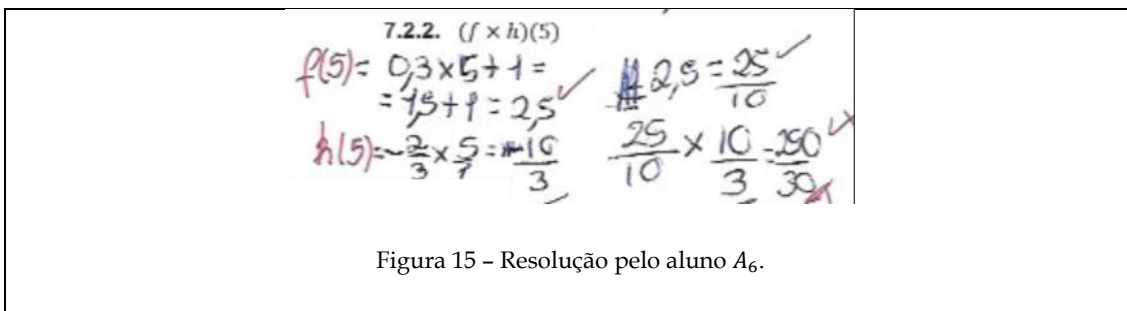 7.2.2. (f × h)(5)
f(5) = 0,3 × 5 + 1 =
= 1,5 + 1 = 2,5 ✓
h(5) = -2/3 × 5/1 = -10/3
2,5 = 25/10 ✓
25/10 × 10/3 = 250/30
Figura 15 – Resolução pelo aluno A₆.